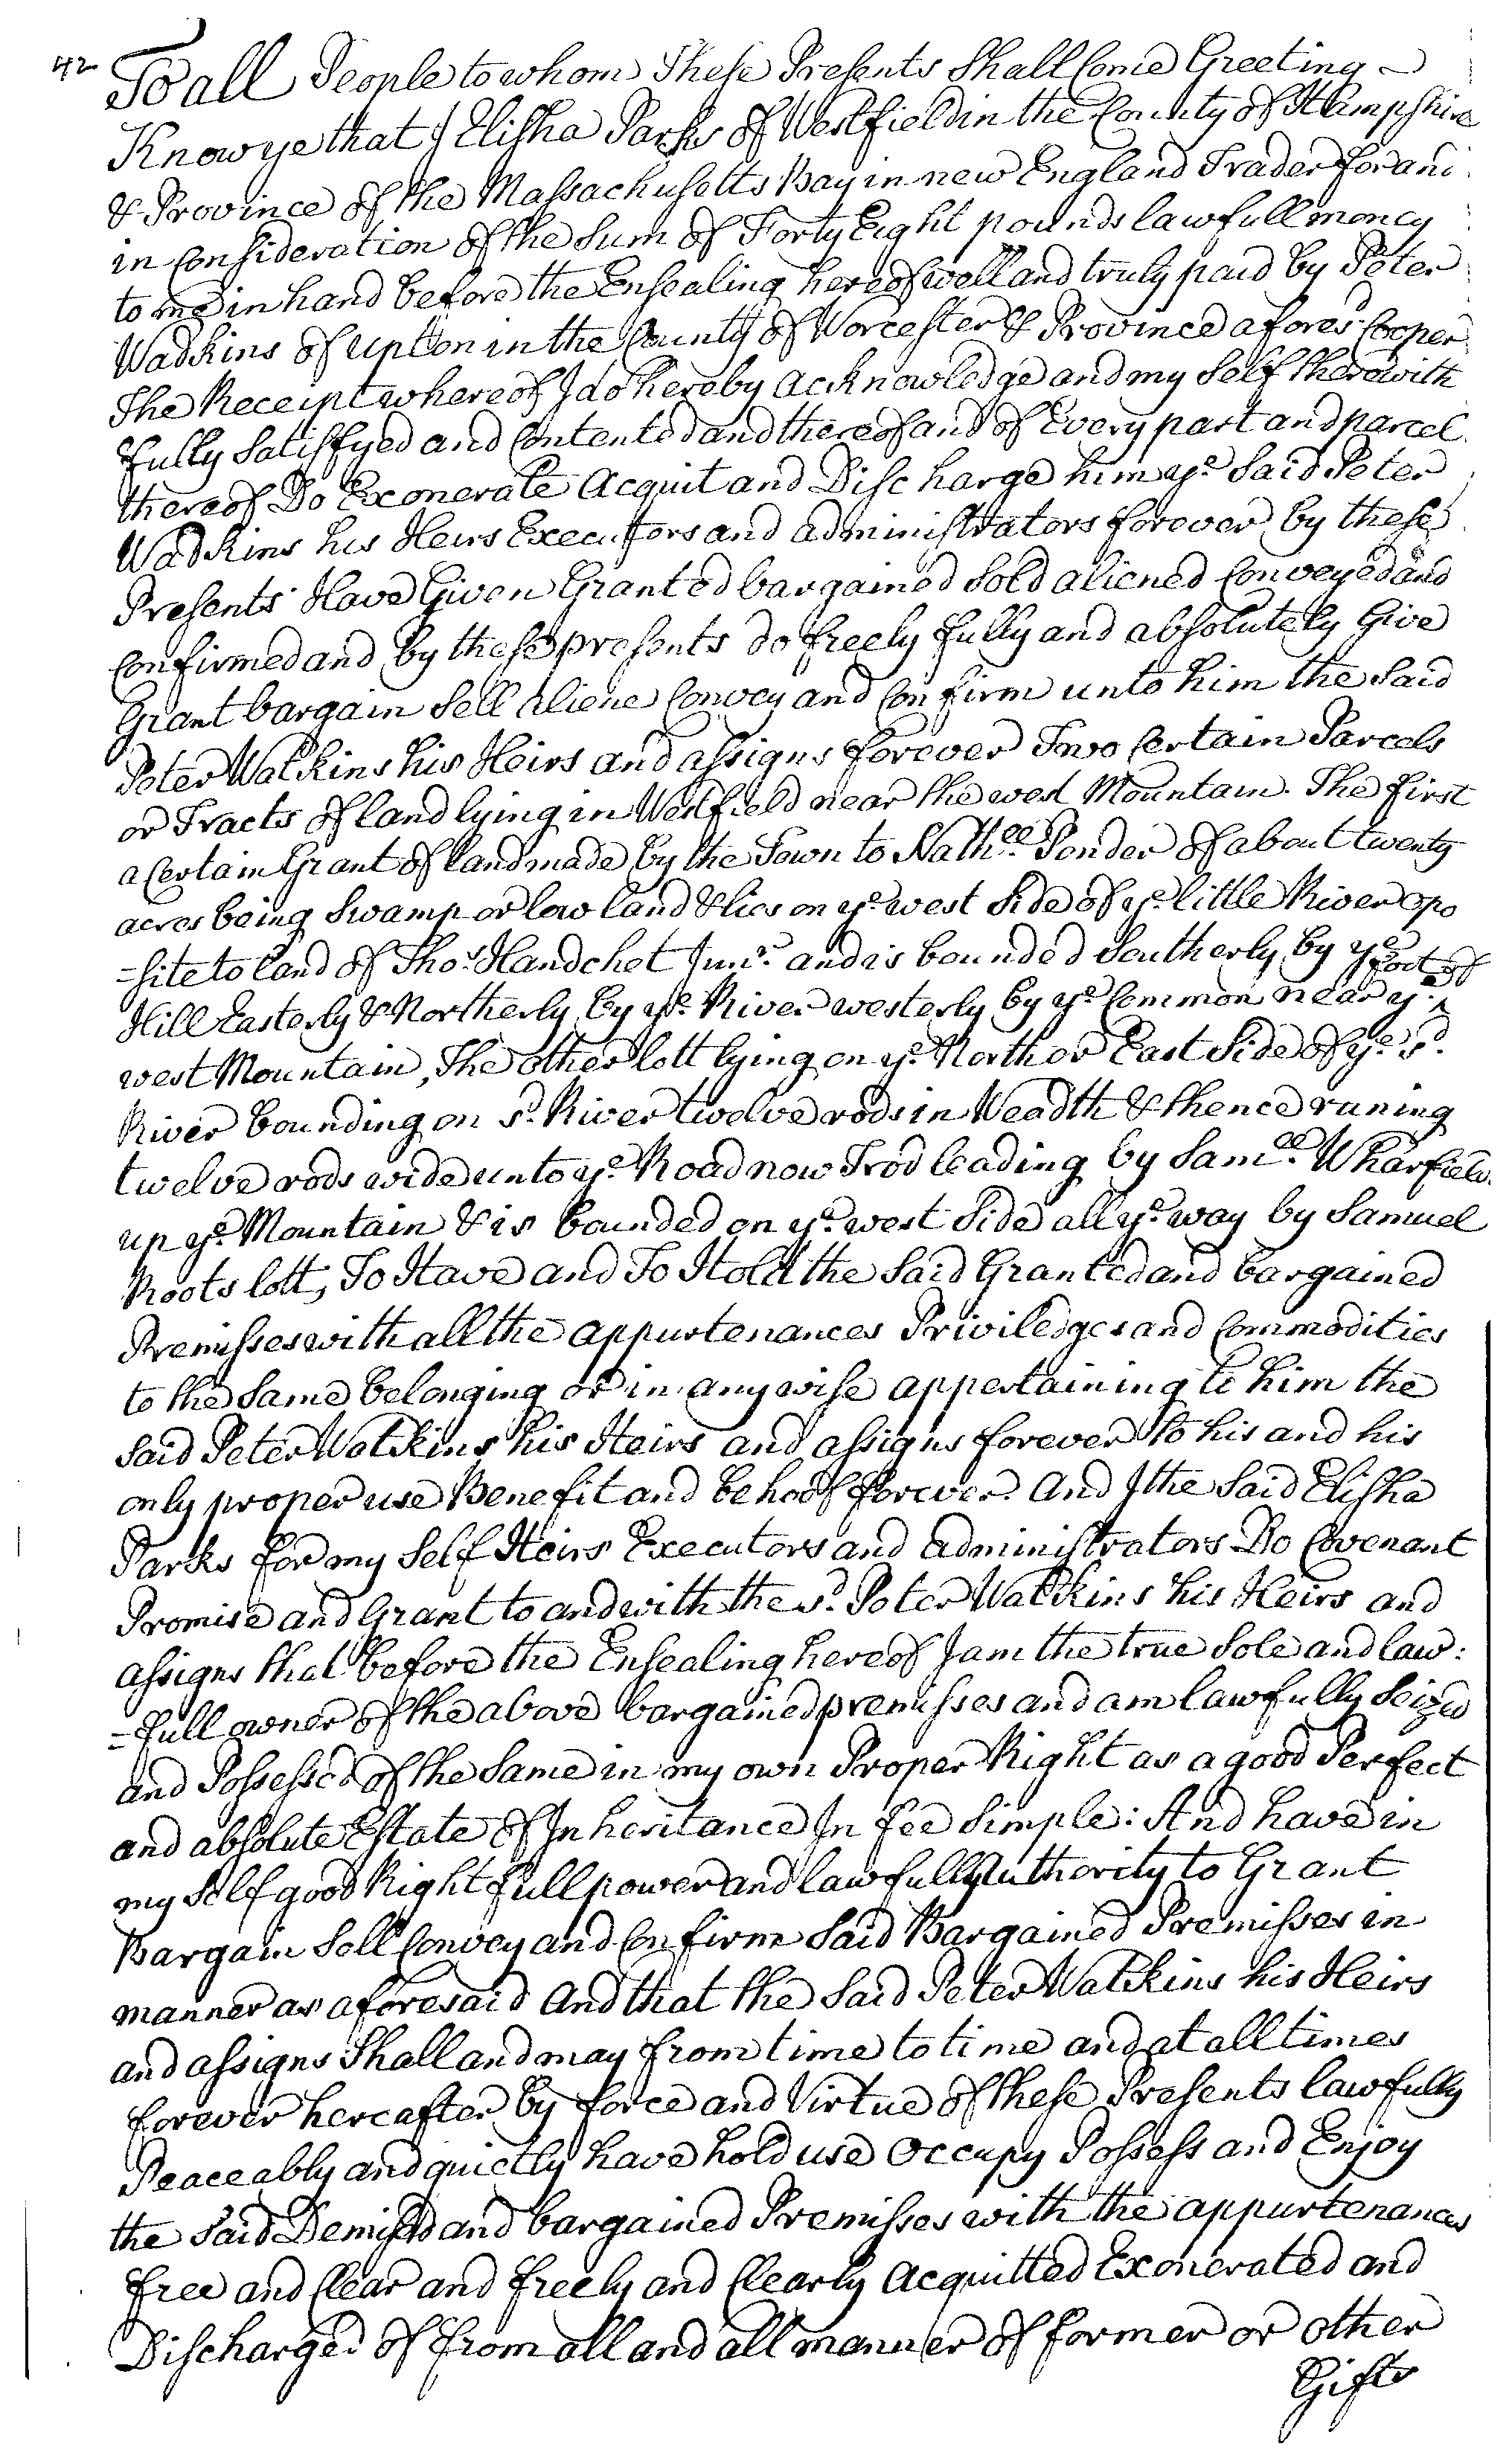 42
To all People to whom These Presents Shall Come Greeting
Know ye that I Elisha Parks of Westfield in the County of Hampshire
& Province of the Massachusetts Bay in new England Trader for and
in Consideration of the Sum of Forty Eight pounds lawfull money
to me in hand before the Ensealing hereof well and truly paid by Peter
Wadkins of Upton in the County of Worcester & Province afores.d Cooper
The Receipt whereof I do hereby acknowledge and my Self therewith
fully Satisfyed and Contented and thereof and of Every part and parcel
thereof Do Exonerate Acquit and Discharge him ye Said Peter
Wadkins his Heirs Executors and administrators forever by these
Presents Have Given Granted bargained Sold aliened Conveyed and
Confirmed and by these presents do freely fully and absolutely Give
Grant bargain Sell Aliene Convey and Confirm unto him the Said
Peter Watkins his Heirs and assigns forever Two Certain Parcels
or Tracts of land lying in Westfield near the west Mountain. The first
a Certain Grant of land made by the Town to Nath.ll Ponder of about twenty
acres being Swamp or low land & lies on ye west Side of ye little River opo
=site to land of Tho.s Handchet Jun.r and is bounded Southerly by ye
foot of
Hill Easterly & Northerly by ye River westerly by ye Common near ye
west Mountain, The other lott lying on ye North or East Side of ye s.d
River bounding on s.d River twelve rods in Weadth & thence runing
twelve rods wide unto ye Road now Trod leading by Sam.ll Wharfield
up ye Mountain & is bounded on ye west Side all ye way by Samuel
Roots lott, To Have and To Hold the Said Granted and bargained
Premisses with all the appurtenances Priviledges and Commodities
to the Same belonging or in any wise appertaining to him the
Said Peter Watkins his Heirs and assigns forever to his and his
only proper use Benefit and behoof forever. And I the Said Elisha
Parks for my Self Heirs Executors and administrators Do Covenant
Promise and Grant to and with the s.d Peter Watkins his Heirs and
assigns that before the Ensealing hereof I am the true Sole and law:
=full owner of the above bargained premisses and am lawfully Seized
and Possessed of the Same in my own Proper Right as a good Perfect
and absolute Estate of Inheritance In fee Simple: And have in
my Self good Right full power and lawfull Authority to Grant
Bargain Sell Convey and Confirm Said Bargained Premisses in
manner as aforesaid And that the Said Peter Watkins his Heirs
and assigns Shall and may from time to time and at all times
forever hereafter by force and Virtue of these Presents lawfully
Peaceably and quietly have hold use Occupy Possess and Enjoy
the Said Demised and bargained Premisses with the appurtenances
free and Clear and freely and Clearly Acquitted Exonerated and
Discharged of from all and all manner of former or other
Gifts